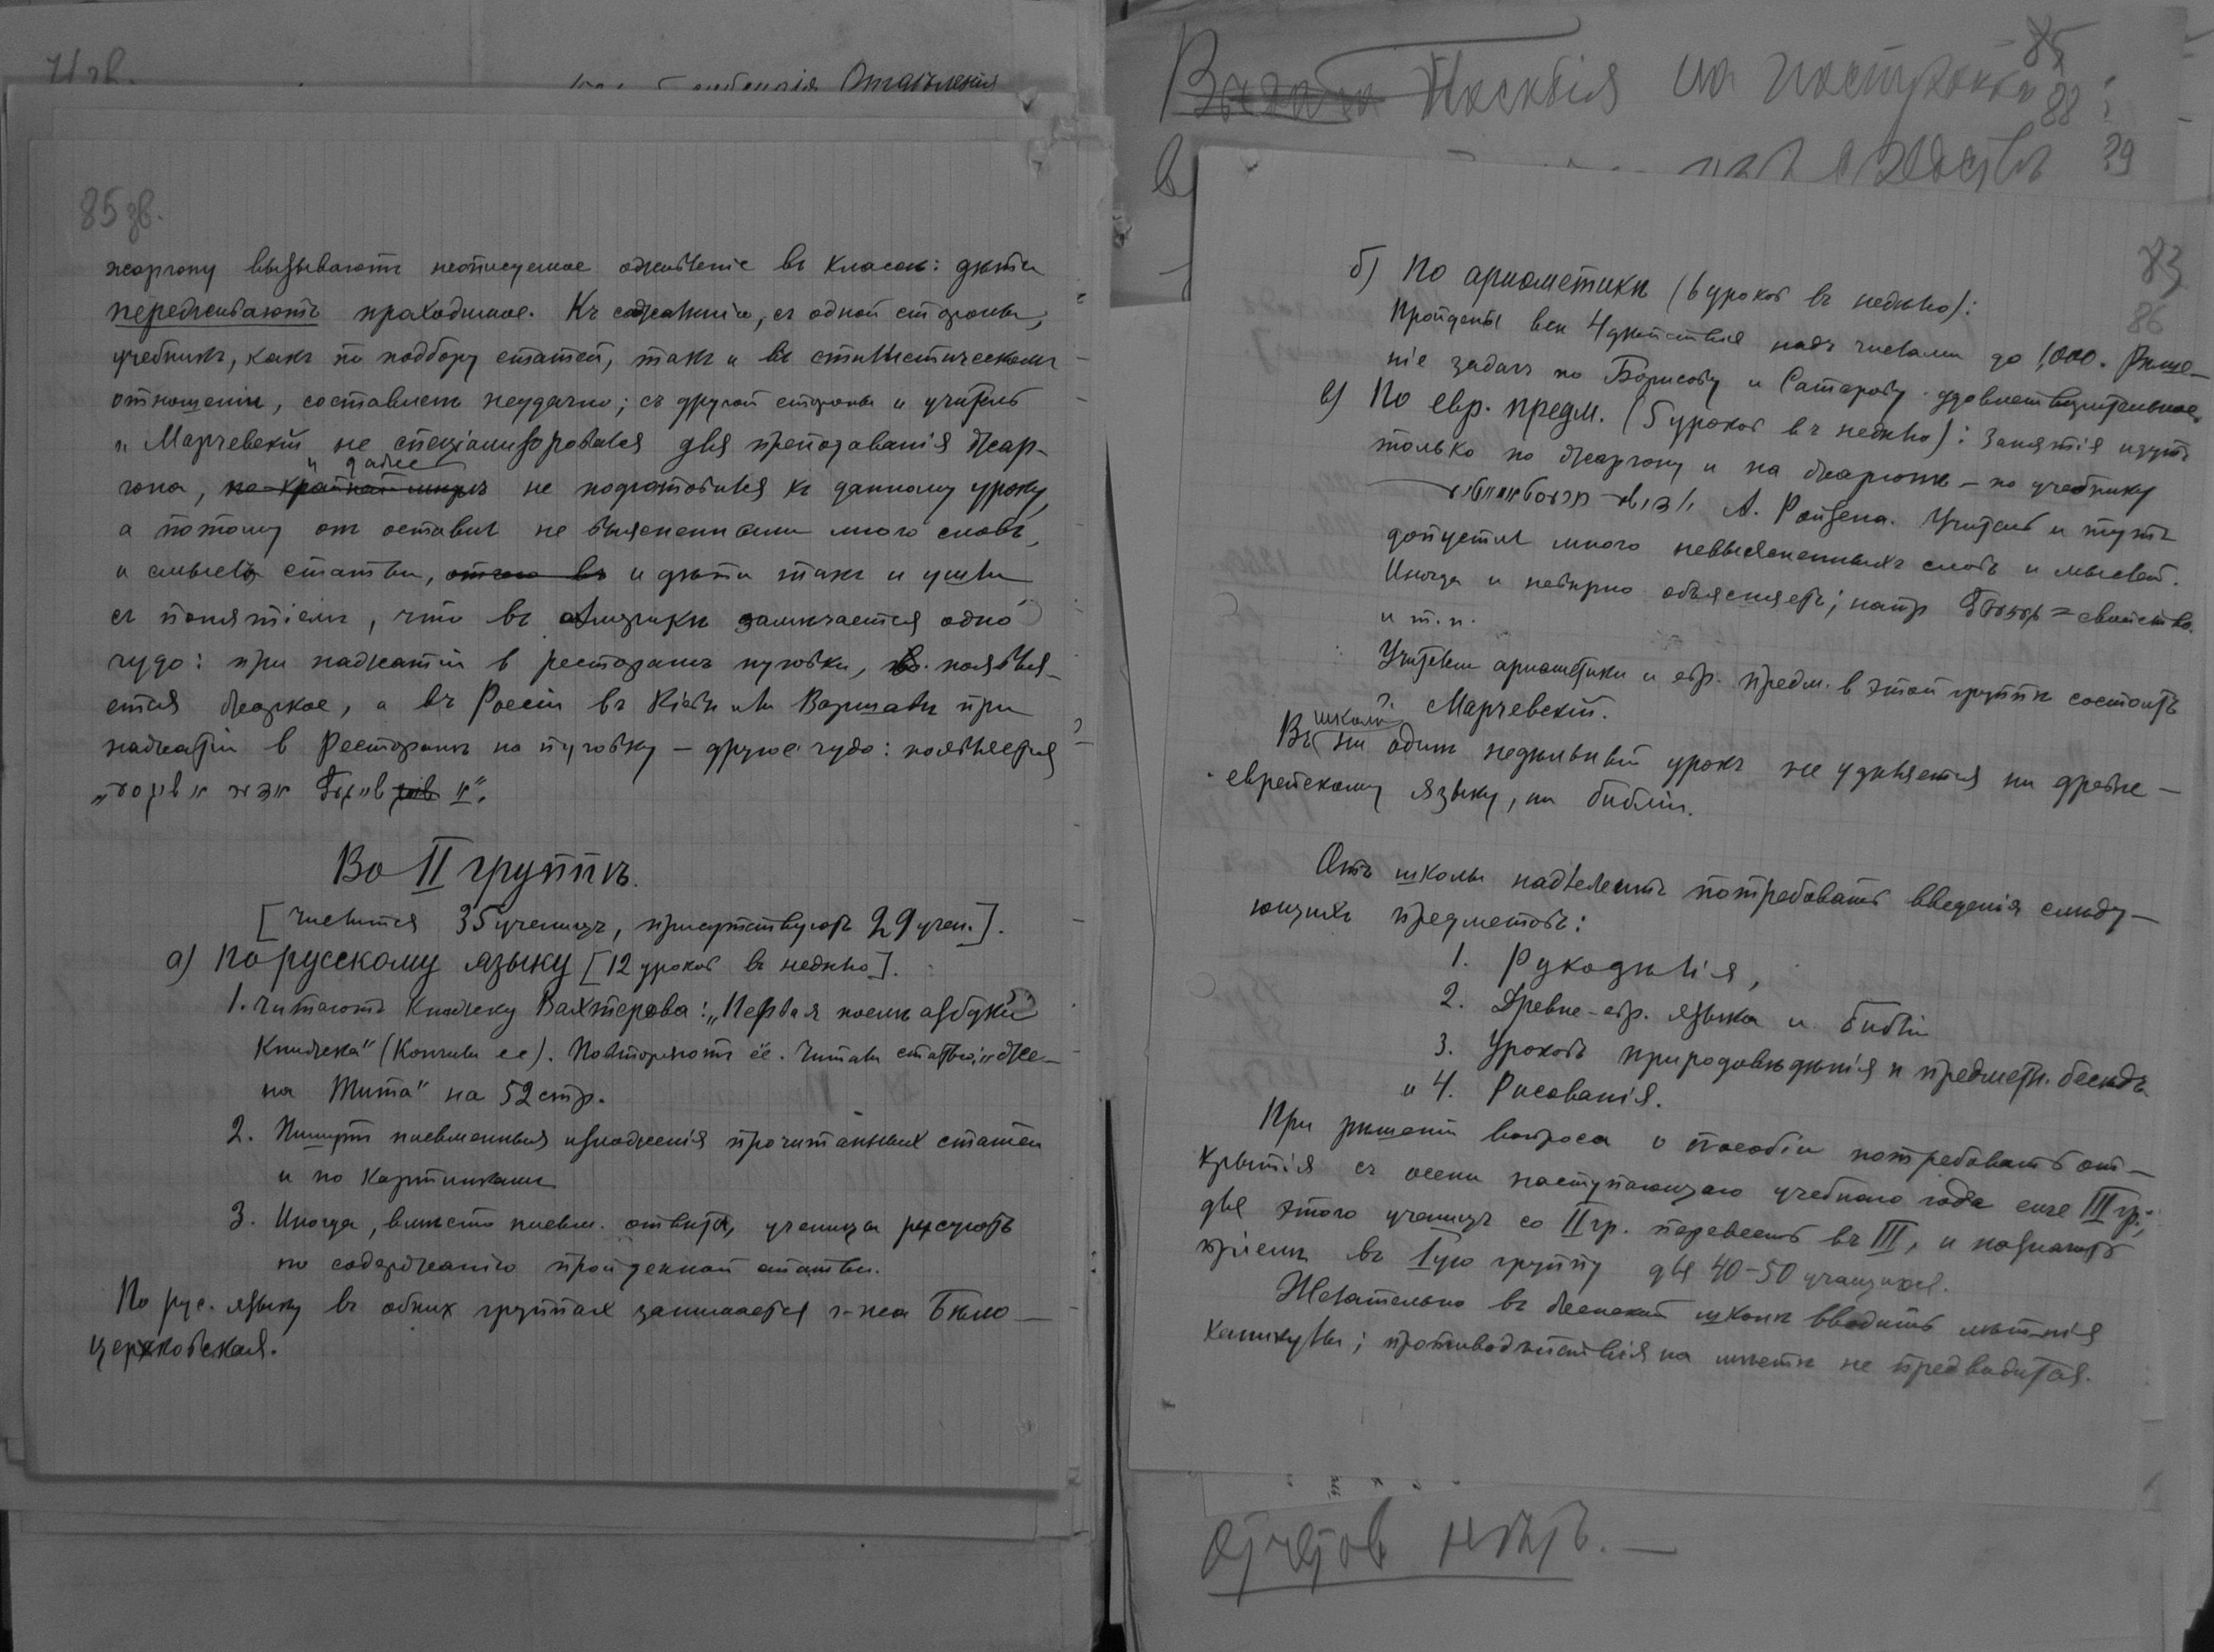 85 зв.
жаргону вызываютъ неописуемое оживленіе въ классѣ: дѣти
переживаютъ проходимое. Къ сожалѣнію, съ одной стороны,
учебникъ, какъ по подбору статей, такъ и въ стилистическомъ
отношеніи, составленъ неудачно; съ другой стороны и учитель
г. Марчевскій не спеціализировался для преподаванія жар-
гона, и даже не подготовился къ данному уроку,
а потому онъ оставилъ не выясненными много словъ,
и смыслъ статьи, и дѣти такъ и ушли
съ понятіемъ, что въ Америкѣ замѣчается одно
чудо: при нажатіи в ресторанѣ пуговки, появля-
ется жаркое, а въ Россіи въ Кіевѣ или Варшавѣ при
нажатіи в Ресторанѣ на пуговку – другое чудо: появляется
Во II группѣ.
[Числится 35 ученицъ, присутствуютъ 29 учен.].
а) По русскому языку [12 уроков въ недѣлю].
1. Читаютъ Книжку Вахтерова: „Первая послѣ азбуки
Книжка" (Кончили ее). Повторяютъ её. Читали статью: „Же-
на Тита" на 52 стр.
2. Пишутъ письменныя изложенія прочитанныхъ статей
и по картинкамъ
3. Иногда, вмѣсто письм. отвѣта, ученицы рисуютъ
по содержанію пройденной статьи.
По рус. языку въ обѣих группах занимается г-жа Бѣло-
церковская.
85
88
89
83
86
б) По ариѳметикѣ (6 уроков въ недѣлю):
Пройдены всѣ 4 дѣйствія надъ числами до 1,000. Рѣше-
ніе задачъ по Борисову и Сатарову удовлетворительное.
в) По евр. предм. (5 уроков въ недѣлю): Занятія идутъ
только по жаргону и на жаргонѣ – по учебнику
А. Ройзена. Учитель и тутъ
допустилъ много невыясненныхъ словъ и мыслей.
Иногда и невѣрно объясняетъ; напр = свойство.
и т. п.
Учителем ариѳметики и евр. предм. в этой группѣ состоитъ
г. Марчевскій.
Въ школѣ ни один недѣльный урокъ не удѣляется ни древне-
еврейскому языку, ни библіи.
Отъ школы надлежитъ потребовать введенія слѣду-
ющихъ предметовъ:
1. Рукодѣлія,
2. Древне-евр. языка и библіи
3. Уроковъ природовѣдѣнія и предметн. бесѣдъ
и 4. Рисованія.
При рѣшеніи вопроса о пособіи потребовать от-
крытія съ осени наступающаго учебнаго года еще III гр.;
для этого ученицъ со II гр. перевесть въ III, и назначить
пріемъ въ Iую группу для 40-50 учащихся.
Желательно въ женской школѣ вводить лѣтнія
каникулы; противодѣйствія на мѣстѣ не предвидится.
Отчетов нѣтъ. —